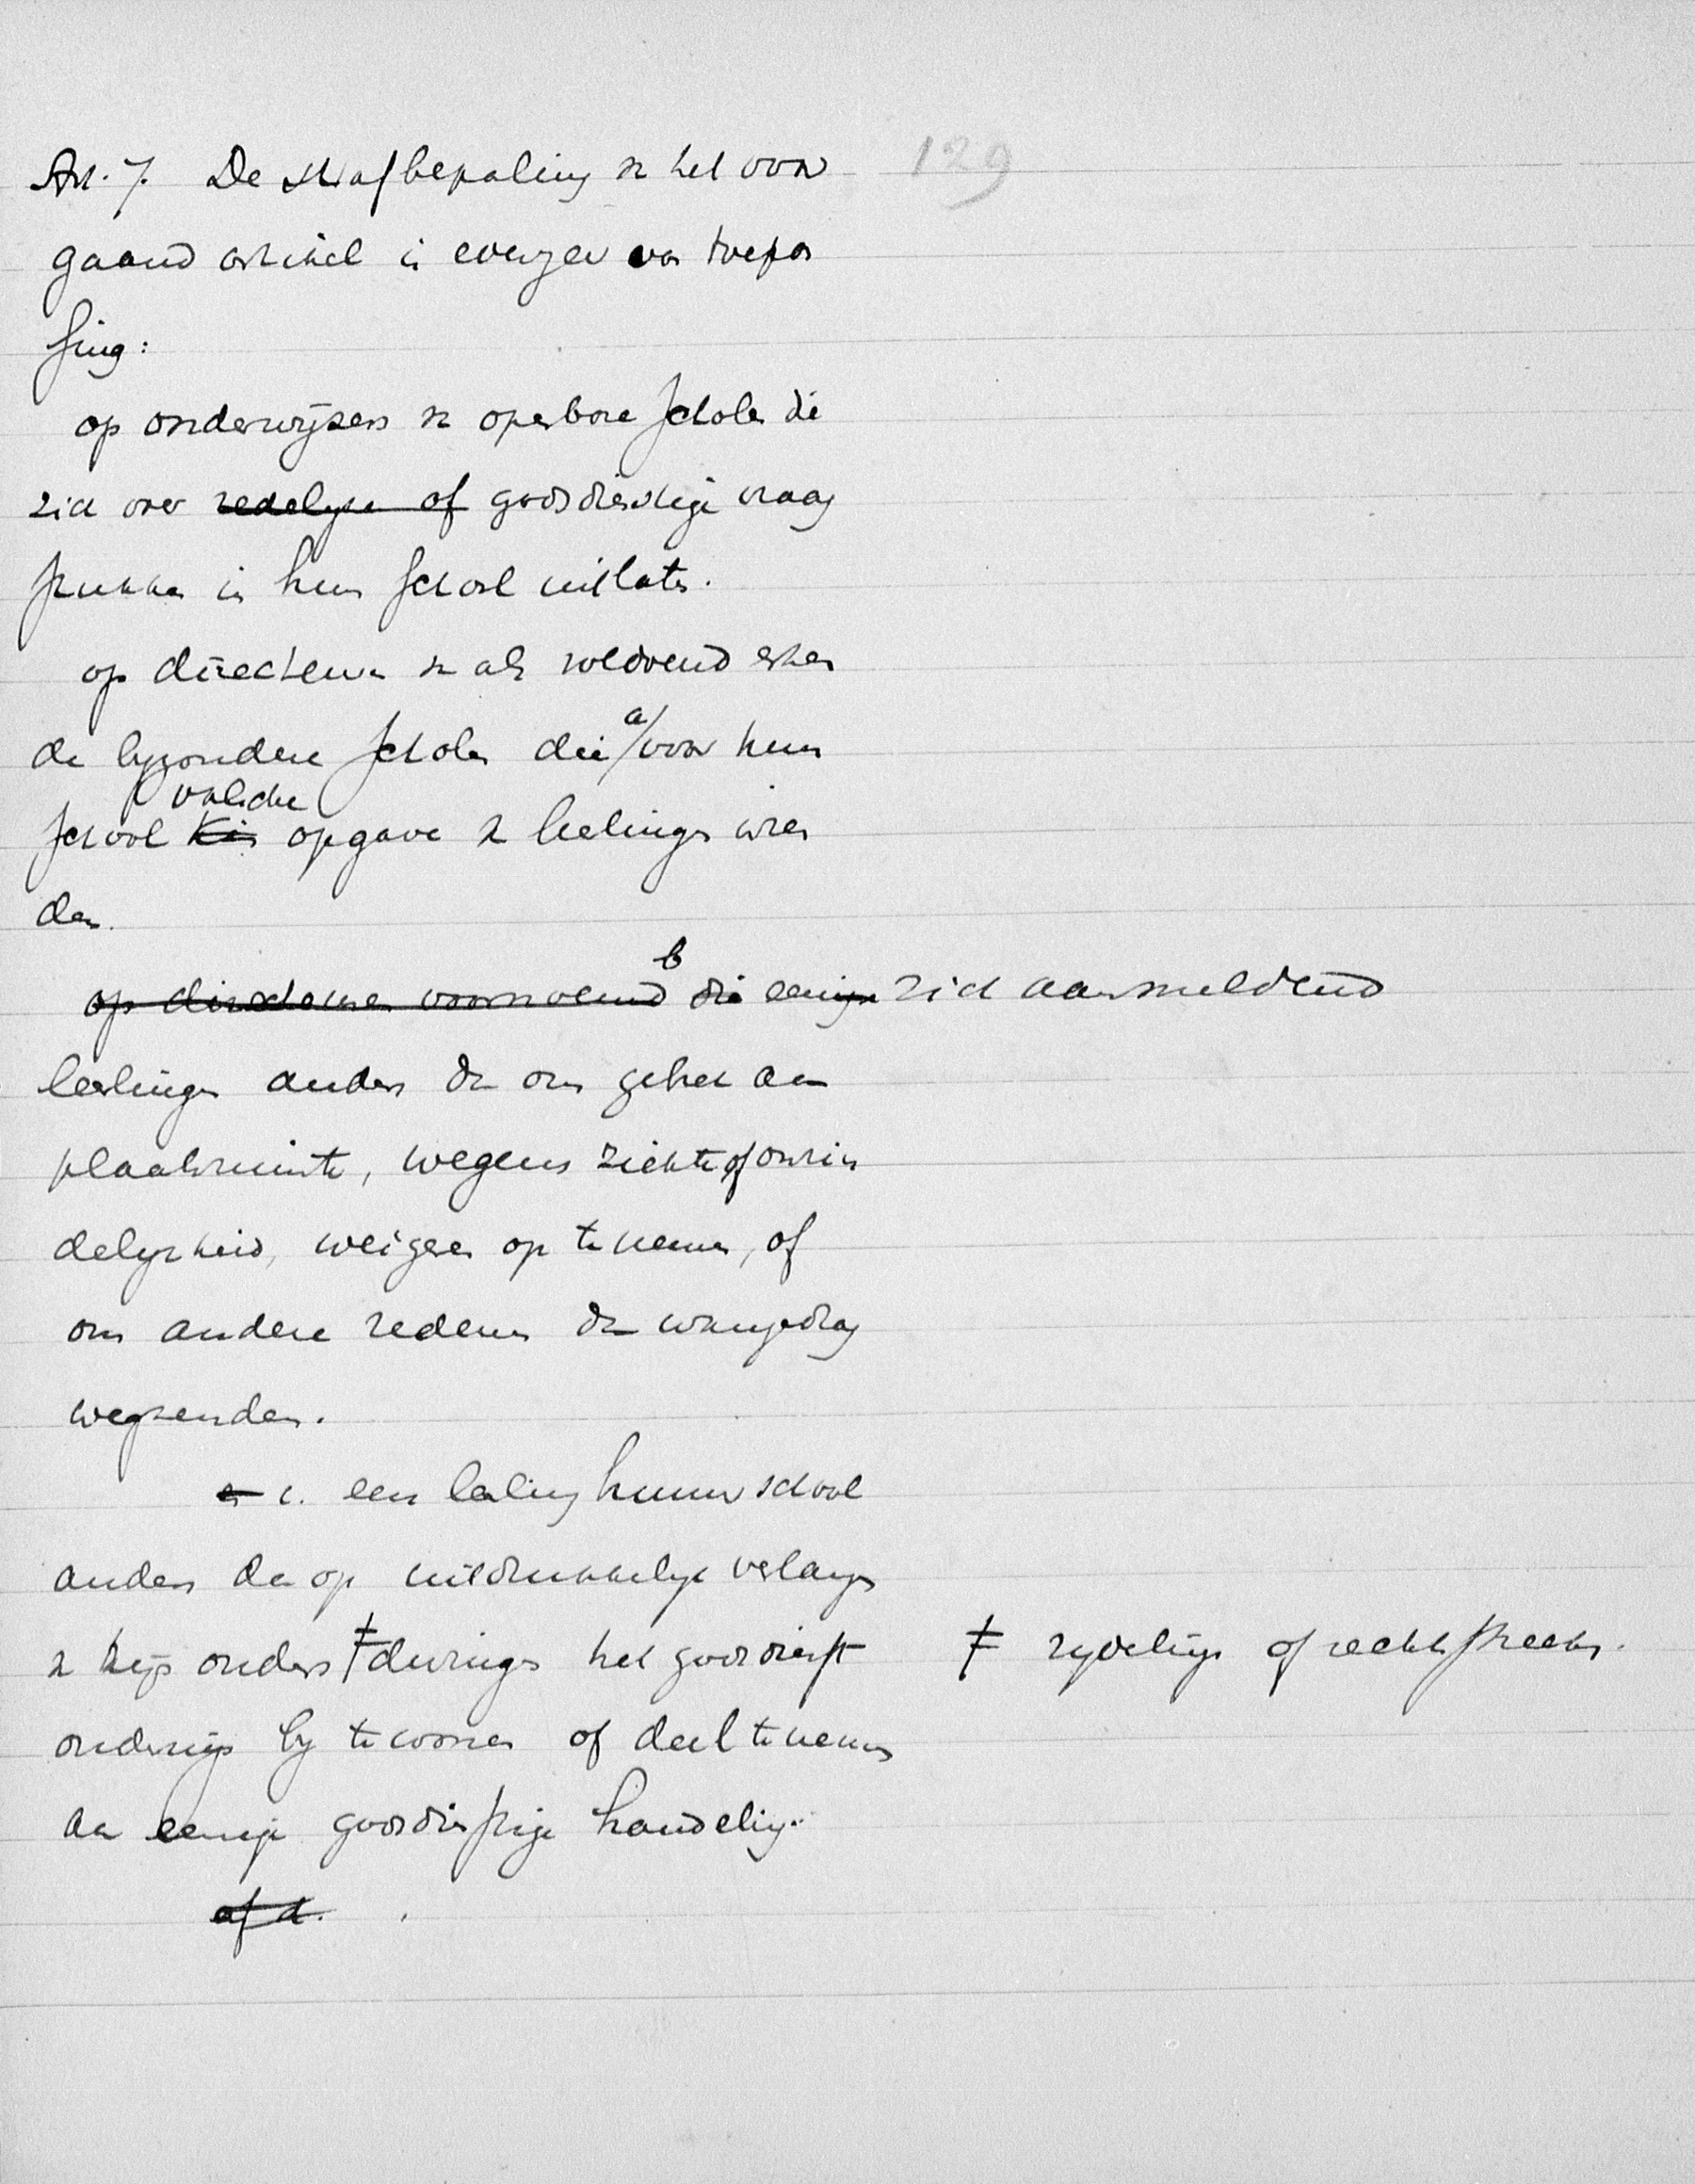 129
Art. 7. De strafbepaling v het voor
gaand artikel is evenzeer van toepas
sing:
op onderwijzers v openbare scholen die
zich over redelijke of godsdienstige vraag
stukken in hun school uitlaten.
op directeuren v als voldoend erken
de byzondere scholen die a/ voor hun
school valsche opgave v leelingen inzen
den.
op directeuren voornoemd b die eenige zich aanmeldend
leerlingen anders dan om gebrek aan
plaatsruimte, wegens ziekte of onzin
delijkheid, weigeren op te nemen, of
om andere redenen dan wangedrag
wegzenden.
c. een leerling hunner school
anders dan op uitdrukkelijk verlangen
v zijn ouders ‡ dwingen het godsdienst
onderwijs by te wonen of deel te nemen
‡ zydelings of rechtstreeks.
aan eenige godsdienstige handeling.
of d.